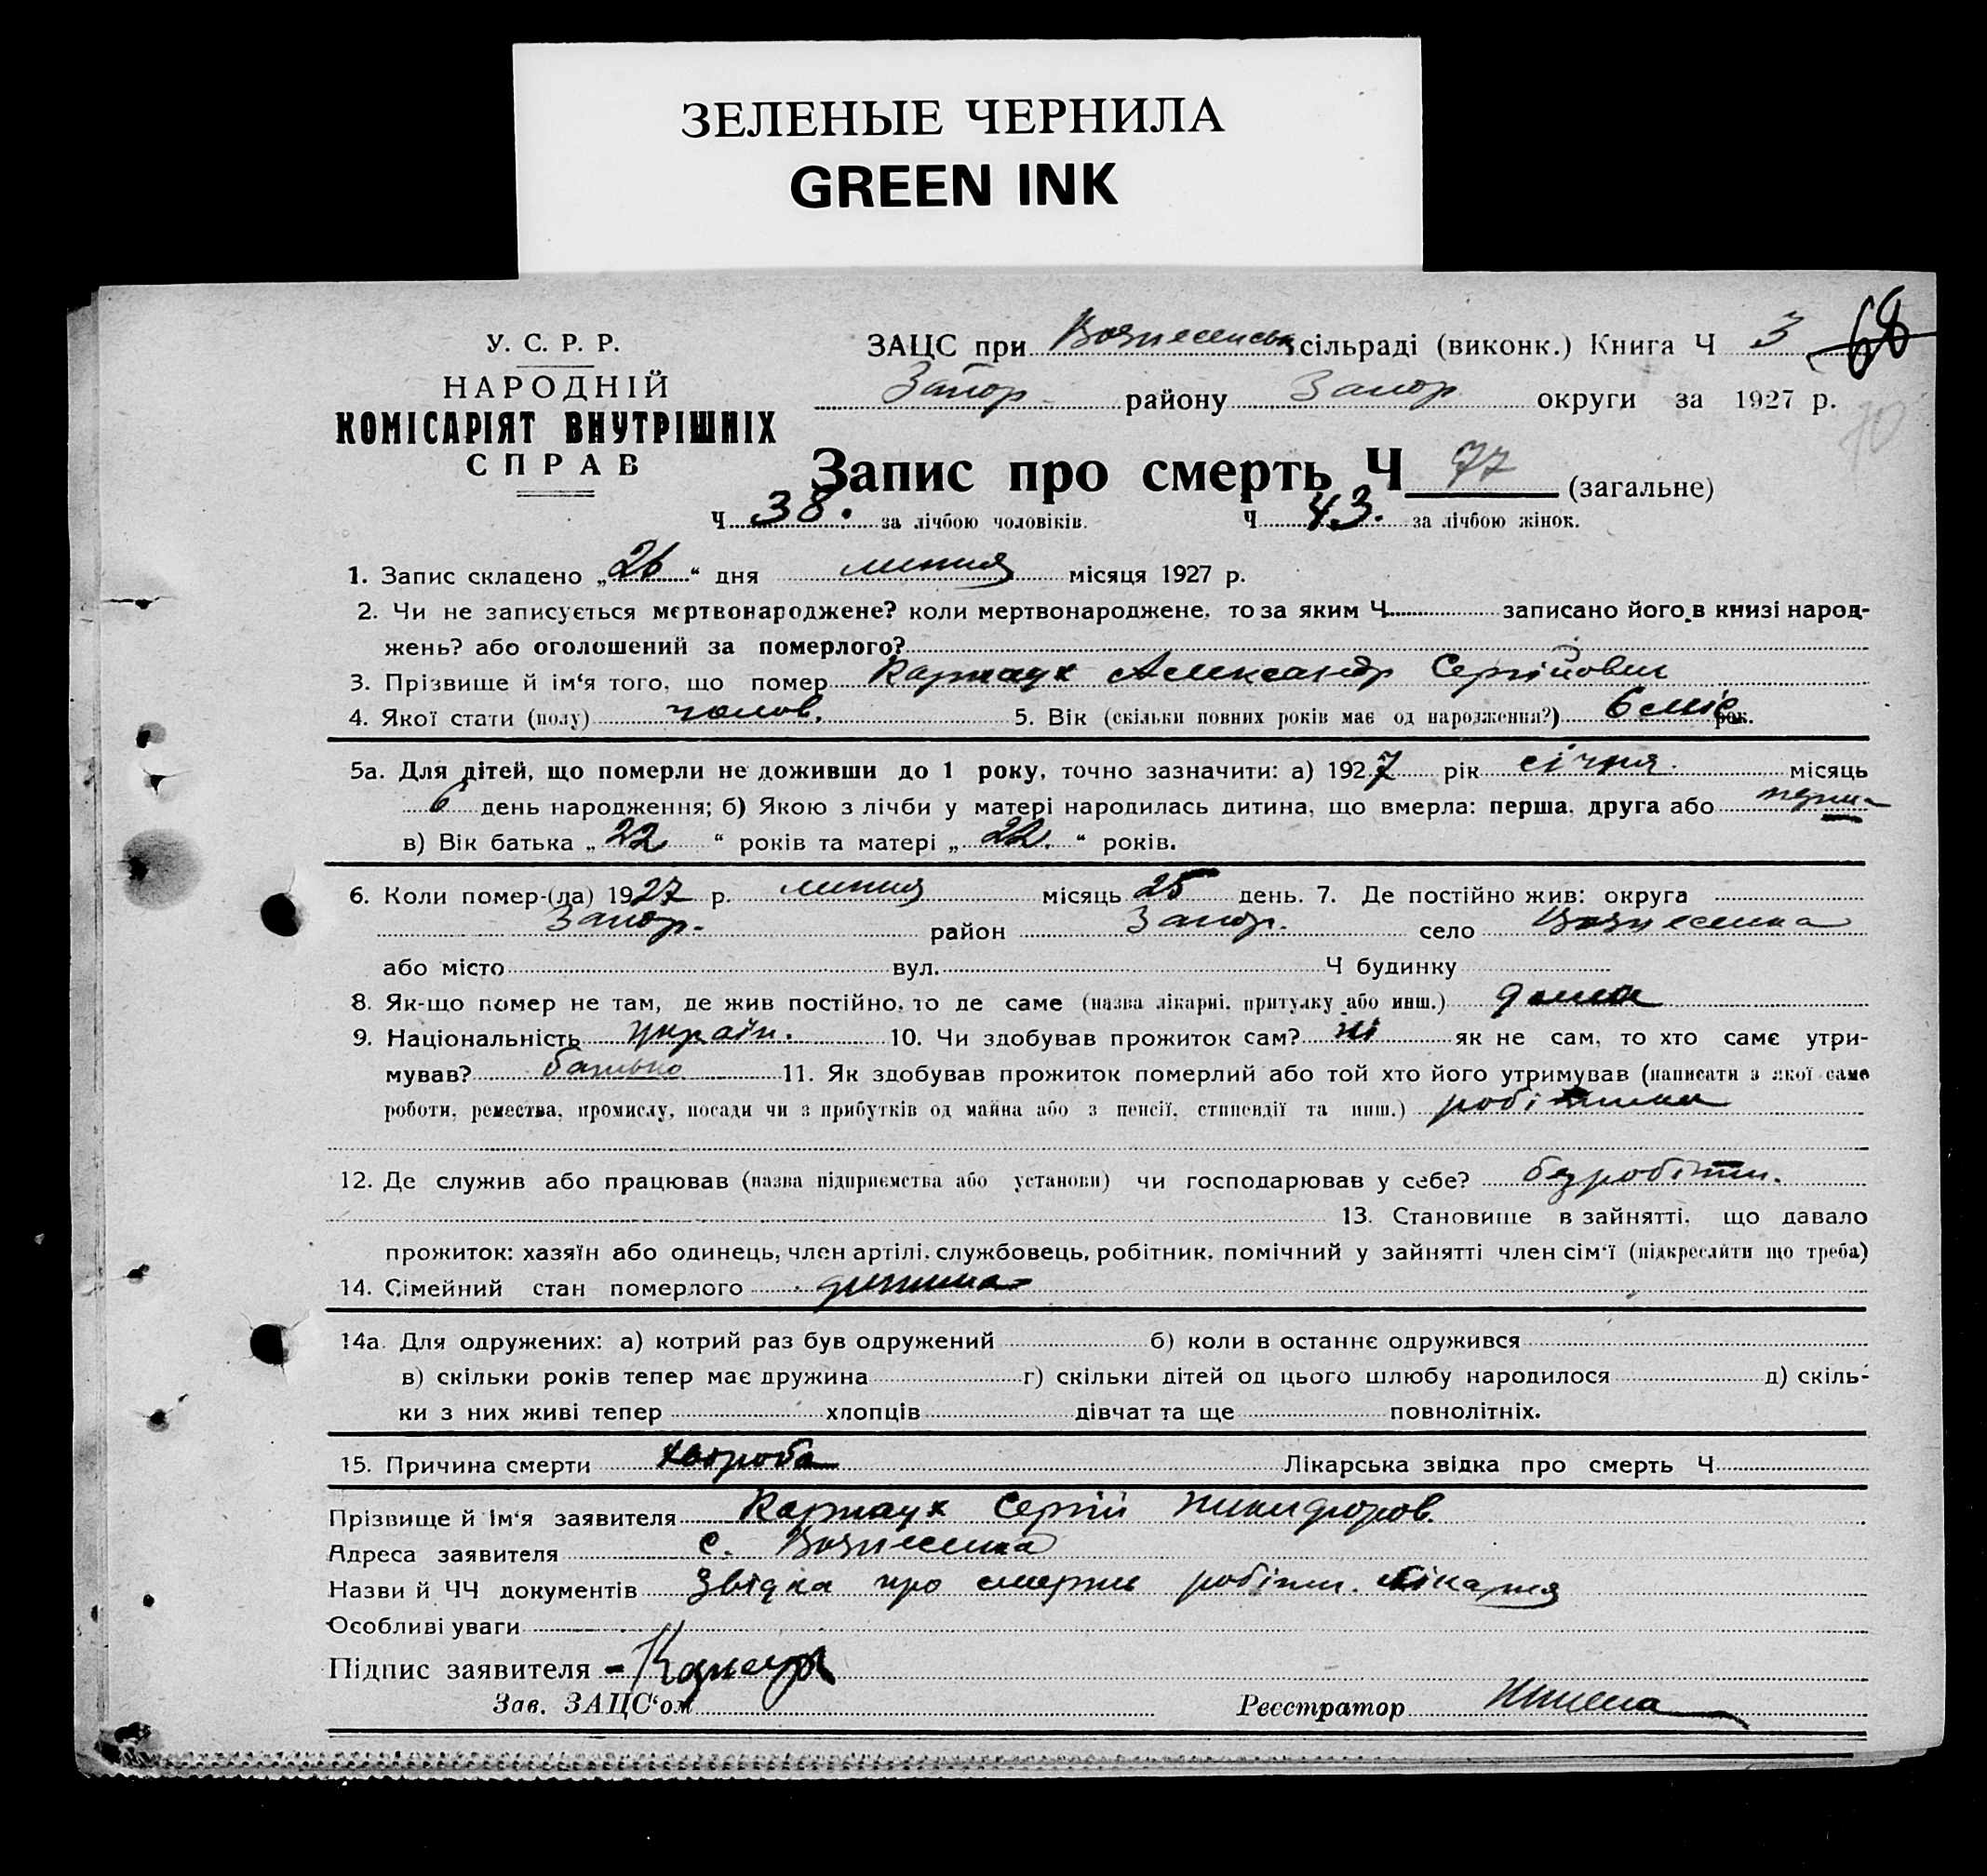 ЗЕЛЕНЫЕ ЧЕРНИЛА
GREEN INK
У. С. Р. Р.
НАРОДНІЙ
КОМІСАРІЯТ ВНУТРІШНІХ
СПРАВ
ЗАЦС при Вознесенськ сільраді (виконк.) Книга Ч 3 68
Запор району Запор округи за 1927 р.
70
Запис про смерть Ч 77 (загальне)
Ч 38. за лічбою чоловіків. Ч 43. за лічбою жінок.
1. Запис складено „26“ дня липня місяця 1927 р.
2. Чи не записується мертвонароджене? коли мертвонароджене, то за яким Ч записано його в книзі народ-
жень? або оголошений за померлого?
3. Прізвище й ім‘я того, що помер Картаух Александр Сергійович
4. Якої стати (полу) чолов. 5. Вік (скільки повних років має од народження?) 6 міс рок.
5а. Для дітей, що померли не доживши до 1 року, точно зазначити: а) 1927 рік січня місяць
6 день народження; б) Якою з лічби у матері народилась дитина, що вмерла: перша, друга або перша
в) Вік батька „22“ років та матері „22.“ років.
6. Коли помер-(ла) 1927 р. липня місяць 25 день. 7. Де постійно жив: округа
Запор. район Запор. село Вознесенка
або місто вул. Ч будинку
8. Як-що помер не там, де жив постійно, то де саме (назва лікарні, притулку або инш.) дома
9. Національність україн. 10. Чи здобував прожиток сам? ні як не сам, то хто саме утри-
мував? батько 11. Як здобував прожиток померлий або той хто його утримував (написати з якої саме
роботи, ремества, промислу, посади чи з прибутків од майна або з пенсії, стипендії та инш.) робітник
12. Де служив або працював (назва підприємства або установи) чи господарював у себе? безробітн.
13. Становище в зайнятті, що давало
прожиток: хазяїн або одинець, член артілі, службовець, робітник, помічний у зайнятті член сім‘ї (підкреслити що треба)
14. Сімейний стан померлого дитина
14а. Для одружених: а) котрий раз був одружений б) коли в останнє одружився
в) скільки років тепер має дружина г) скільки дітей од цього шлюбу народилося д) скіль-
ки з них живі тепер хлопців дівчат та ще повнолітніх.
15. Причина смерти хвороба Лікарська звідка про смерть Ч
Прізвище й ім‘я заявителя Картаух Сергій Никифоров.
Адреса заявителя с. Вознесенка
Назви й ЧЧ документів Звідка про смерть робітн. лікаря
Особливі уваги
Підпис заявителя
Зав. ЗАЦС‘ом Реєстратор